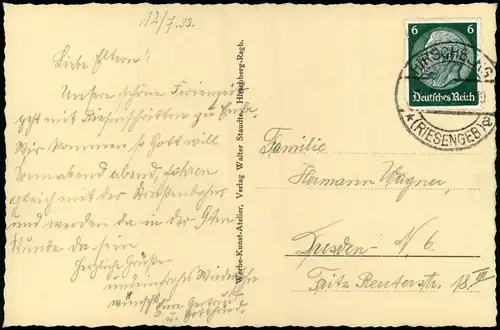 12/7.33.
Liebe Eltern!
Unsere schöne Ferienzeit
geht mit Riesenschritten zu Ende.
Wir kommen so Gott will
Sonnabend abend, fahren
gleich mit der Straßenbahn
und werden da in der 9ten
Stunde da sein
Herzliche Grüße
und ein frohes Wiedersehn
wünschen Eure Gertrud
u. Gotthard.
Werbe-Kunst-Atelier, Verlag Walter Staudte, Hirschberg-Rsgb.
6 6
Deutsches Reich
HIRSCHBERG
(RIESENGEB) a
Familie
Hermann Wagner,
Dresden - N. 6
Fritz Reuterstr. 18 III